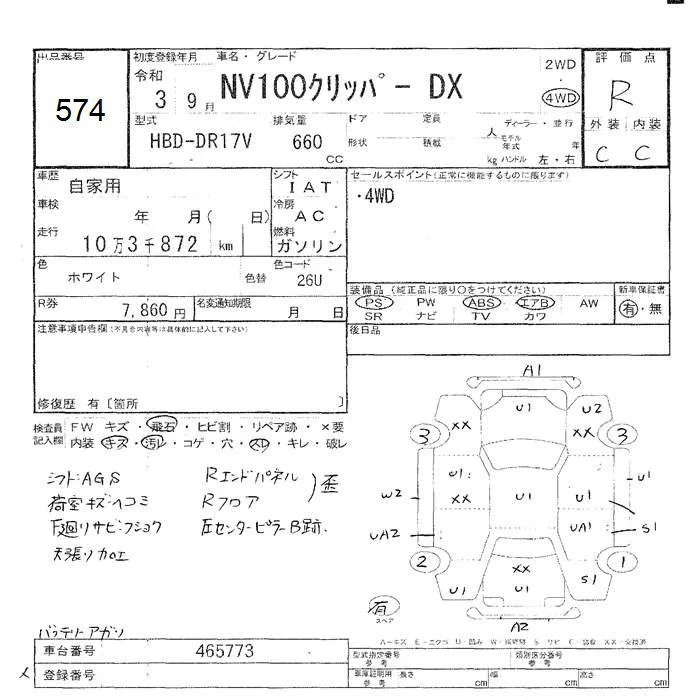 出品番号
574
初度登録年月 車名・グレード
令和
3 9月
NV100クリッパー DX
2WD
4WD
評価点
R
外装 内装
C C
型式
HBD-DR17V
排気量
660
CC
ドア 定員
人
形状 積載
kg
ディーラー・並行
モデル年式 年
ハンドル 左・右
車歴
自家用
シフト
IAT
車検
年 月( 日)
冷房
AC
走行
10万3千872 km
燃料
ガソリン
色
ホワイト
色替
色コード
26U
R券
7,860円
名変通知期限
月 日
セールスポイント(正常に機能するものに限ります)
・4WD
装備品 (純正品に限り○をつけてください)
PS PW ABS エアB AW
SR ナビ TV カワ
新車保証書
有・無
注意事項申告欄(不具合内容等は具体的に記入して下さい)
後日品
修復歴 有〔箇所 〕
検査員記入欄
FW キズ・飛石・ヒビ割・リペア跡・×要
内装 キズ・汚レ・コゲ・穴・スレ・キレ・破レ
シフト:AGS
荷室キズ・ヘコミ
下廻りサビ・フショク
天張り加工
Rエンドパネル
Rフロア
)歪
左センターピラーB跡.
A1
U1
U2
XX
XX
3
3
U1
XX
W2
U1
U1
U1
UA2
UA1
S1
2
1
XX
U1
U1
S1
有
スペア
A2
バッテリーアガリ
A-キズ E-エクボ U-凹み W-補修跡 S-サビ C-腐食 XX-交換済
車台番号
465773
登録番号
型式指定番号
参考
類別区分番号
参考
車庫証明用
参考
長さ cm
幅 cm
高さ cm